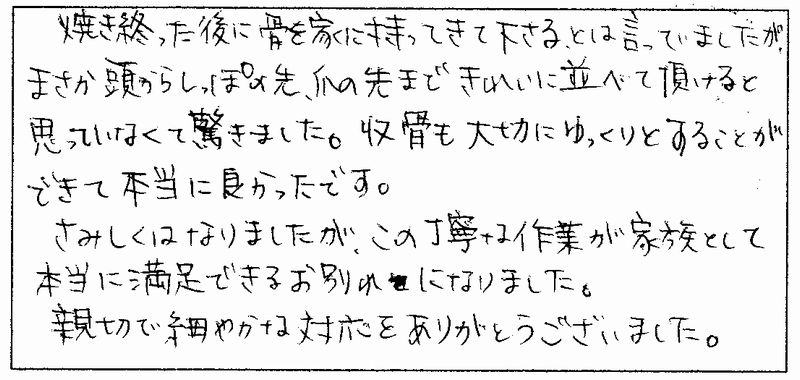 焼き終った後に骨を家に持ってきて下さる、とは言っていましたが、
まさか頭からしっぽの先、爪の先まできれいに並べて頂けると
思っていなくて驚きました。収骨も大切にゆっくりとすることが
できて本当に良かったです。
さみしくはなりましたが、この丁寧な作業が家族として
本当に満足できるお別れになりました。
親切で細やかな対応をありがとうございました。